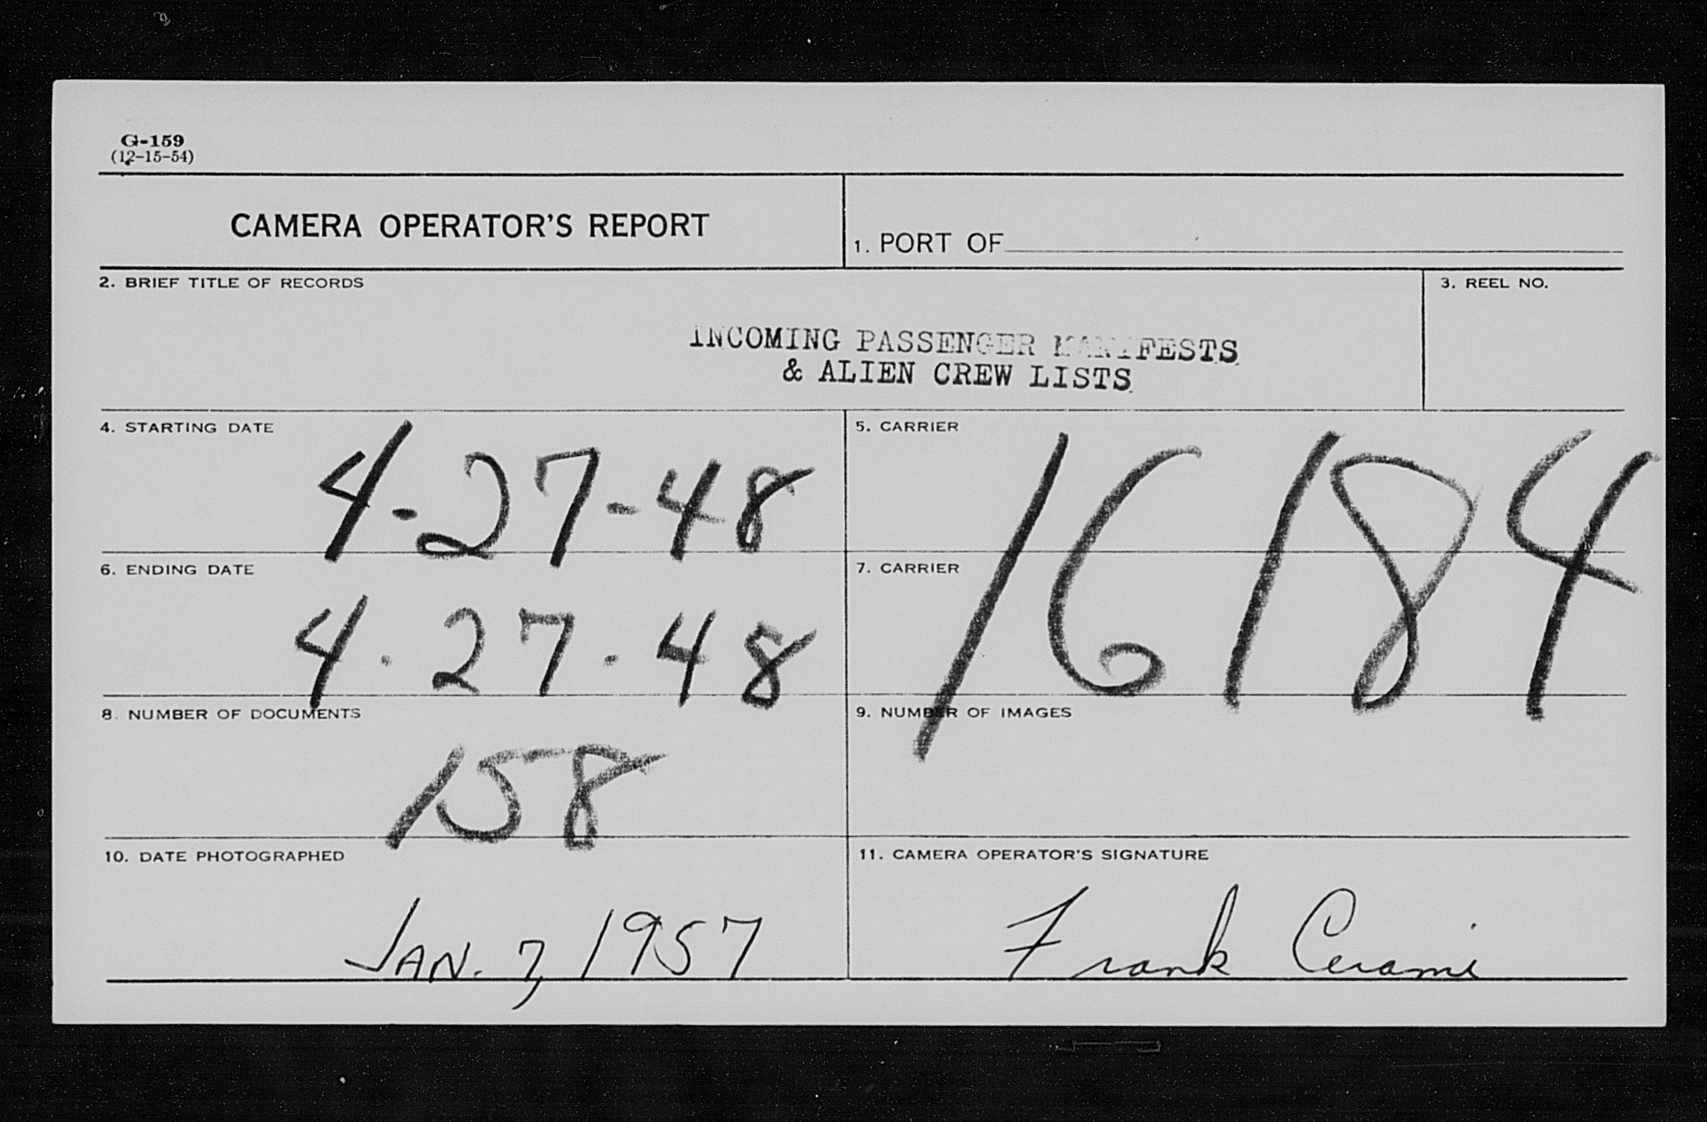 G-159
(12-15-54)
CAMERA OPERATOR'S REPORT
1. PORT OF
2. BRIEF TITLE OF RECORDS
3. REEL NO.
INCOMING PASSENGER MANIFESTS
& ALIEN CREW LISTS
4. STARTING DATE
4-27-48
5. CARRIER
16184
6. ENDING DATE
4-27-48
7. CARRIER
8. NUMBER OF DOCUMENTS
158
9. NUMBER OF IMAGES
10. DATE PHOTOGRAPHED
JAN. 7, 1957
11. CAMERA OPERATOR'S SIGNATURE
Frank Cerami